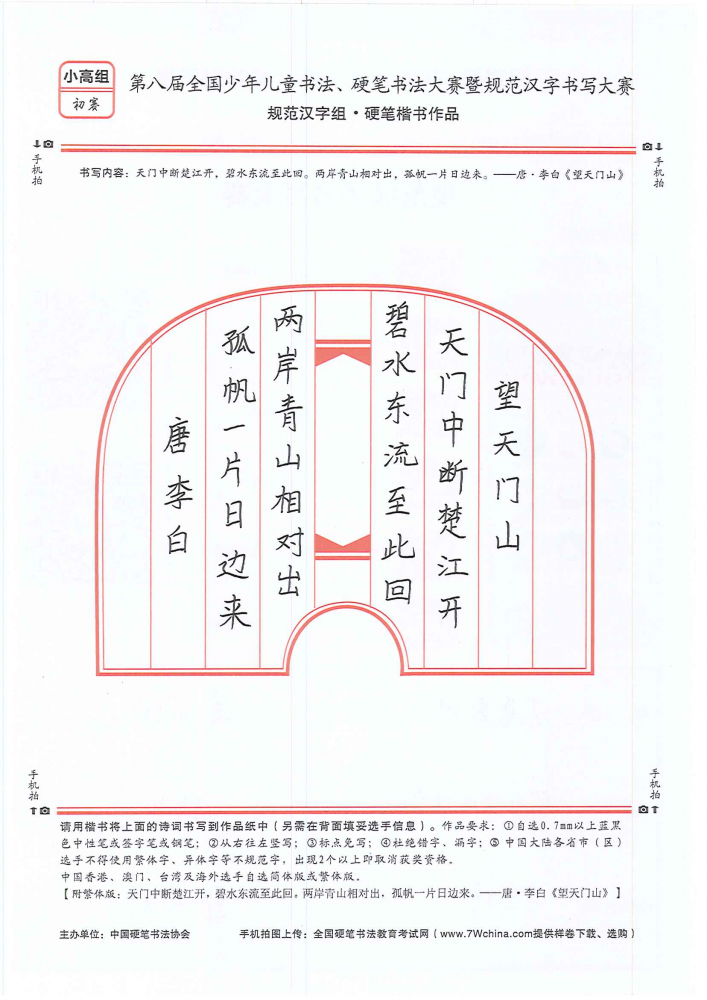 小高组
初赛
第八届全国少年儿童书法、硬笔书法大赛暨规范汉字书写大赛
规范汉字组·硬笔楷书作品
手机拍
手机拍
书写内容：天门中断楚江开，碧水东流至此回。两岸青山相对出，孤帆一片日边来。——唐·李白《望天门山》
望天门山
天门中断楚江开
碧水东流至此回
两岸青山相对出
孤帆一片日边来
唐李白
手机拍
手机拍
请用楷书将上面的诗词书写到作品纸中（另需在背面填妥选手信息）。作品要求：①自选0.7mm以上蓝黑
色中性笔或签字笔或钢笔；②从右往左竖写；③标点免写；④杜绝错字、漏字；⑤ 中国大陆各省市（区）
选手不得使用繁体字、异体字等不规范字，出现2个以上即取消获奖资格。
中国香港、澳门、台湾及海外选手自选简体版或繁体版。
【附繁体版：天门中断楚江开，碧水东流至此回。两岸青山相对出，孤帆一片日边来。——唐·李白《望天门山》】
主办单位：中国硬笔书法协会
手机拍图上传：全国硬笔书法教育考试网（www.7Wchina.com提供样卷下载、选购）